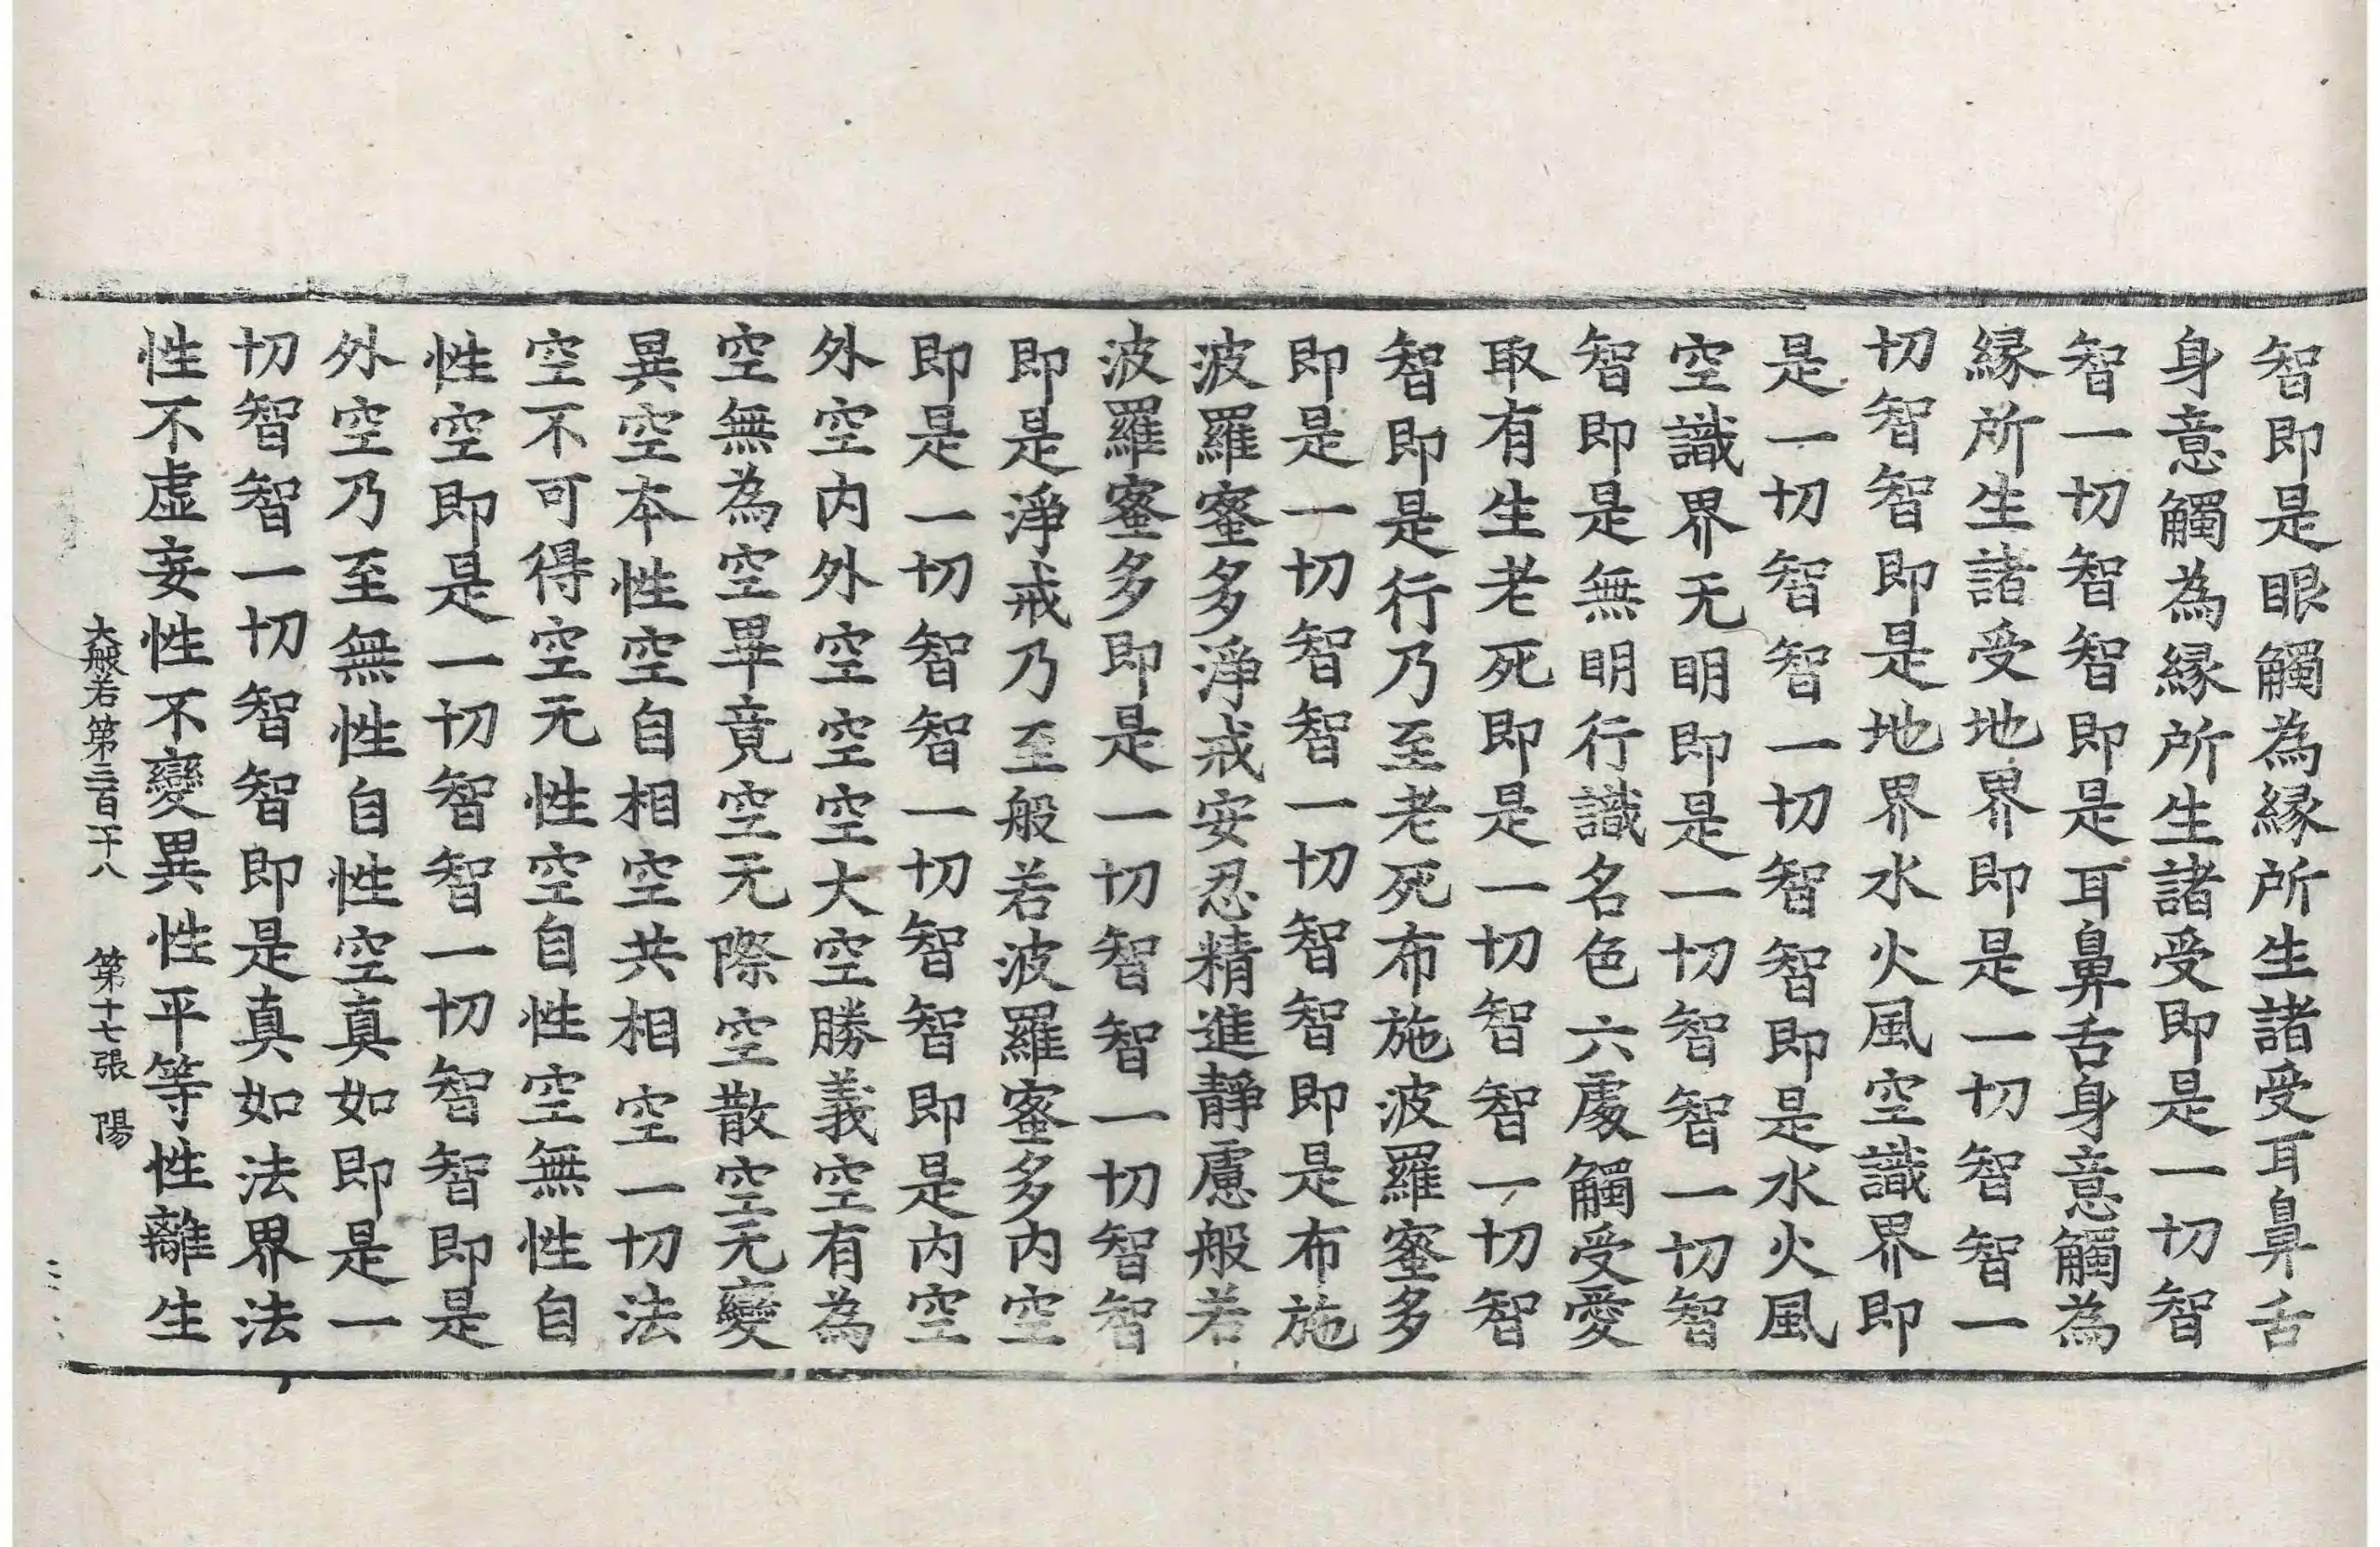 智即是眼觸為縁所生諸受耳鼻舌
身意觸為縁所生諸受即是一切智
智一切智智即是耳鼻舌身意觸為
縁所生諸受地界即是一切智智一
切智智即是地界水火風空識界即
是一切智智一切智智即是水火風
空識界无明即是一切智智一切智
智即是無明行識名色六處觸受愛
取有生老死即是一切智智一切智
智即是行乃至老死布施波羅蜜多
即是一切智智一切智智即是布施
波羅蜜多淨戒安忍精進靜慮般若
波羅蜜多即是一切智智一切智智
即是淨戒乃至般若波羅蜜多内空
即是一切智智一切智智即是内空
外空内外空空空大空勝義空有為
空無為空畢竟空无際空散空无變
異空本性空自相空共相空一切法
空不可得空无性空自性空無性自
性空即是一切智智一切智智即是
外空乃至無性自性空真如即是一
切智智一切智智即是真如法界法
性不虚妄性不變異性平等性離生
大般若第三百二十八 第十七張 陽